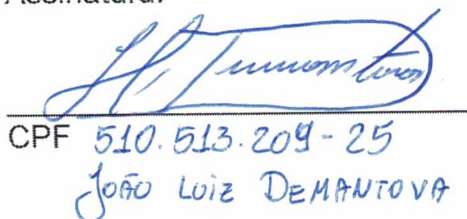 Assinatura:
CPF 510.513.209-25
JOÃO LUIZ DEMANTOVA